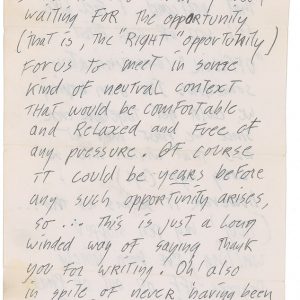 waiting FOR the opportunity
(that is, the "RIGHT" opportunity)
For us to meet in some
kind of neutral context
THat would be comfortable
and Relaxed and Free of
any pressure. Of course
it could be years before
any such opportunity arises,
so... This is just a long
winded way of saying thank
you for writing. Oh! also
in spite of never having been